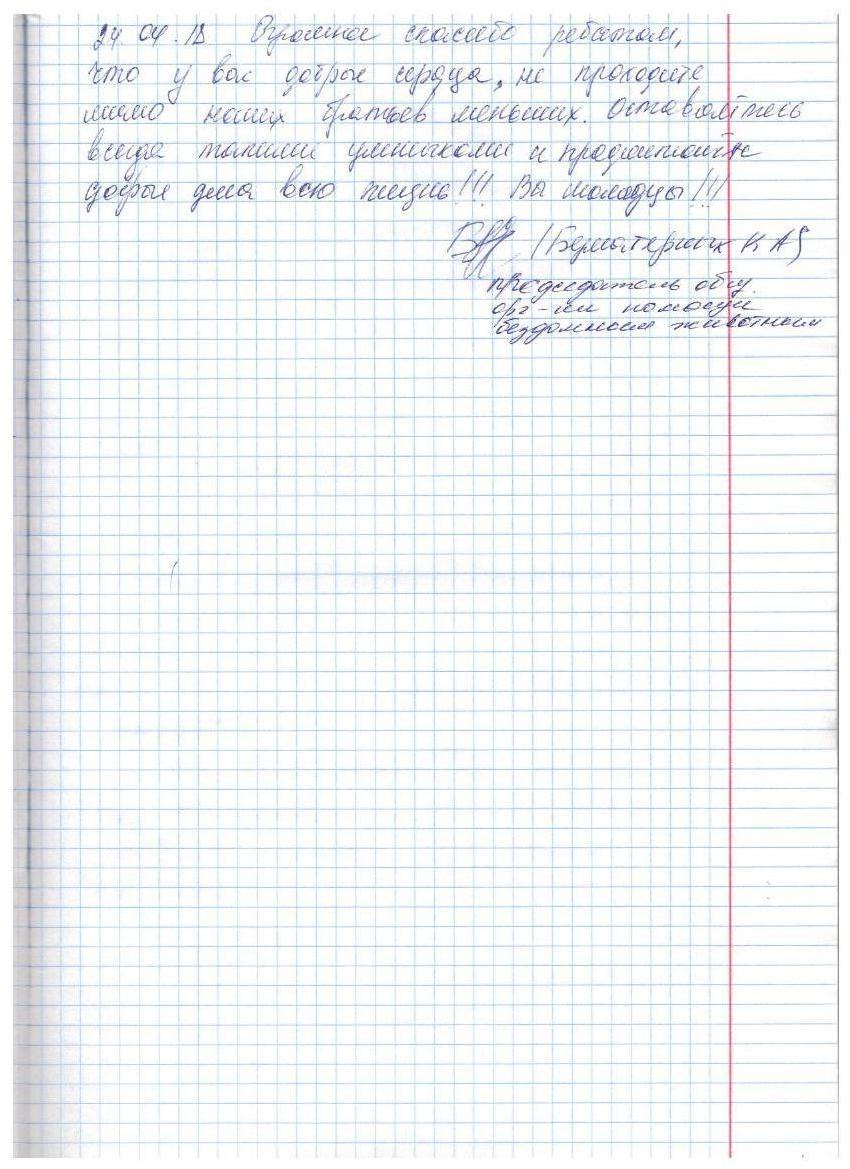 24 04.18 Огромное спасибо ребятам,
что у вас добрые сердца, не проходите
мимо наших братьев меньших. Оставайтесь
всегда такими умничками и продолжайте
добрые дела всю жизнь!!! Вы молодцы!!!
К А
председатель общ.
орг-ии помощи
бездомным животным